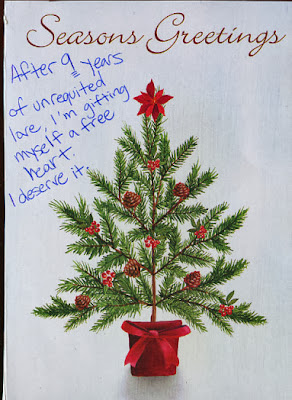 Seasons Greetings
After 9 years
of unrequited
love, I'm gifting
myself a free
heart.
I deserve it.